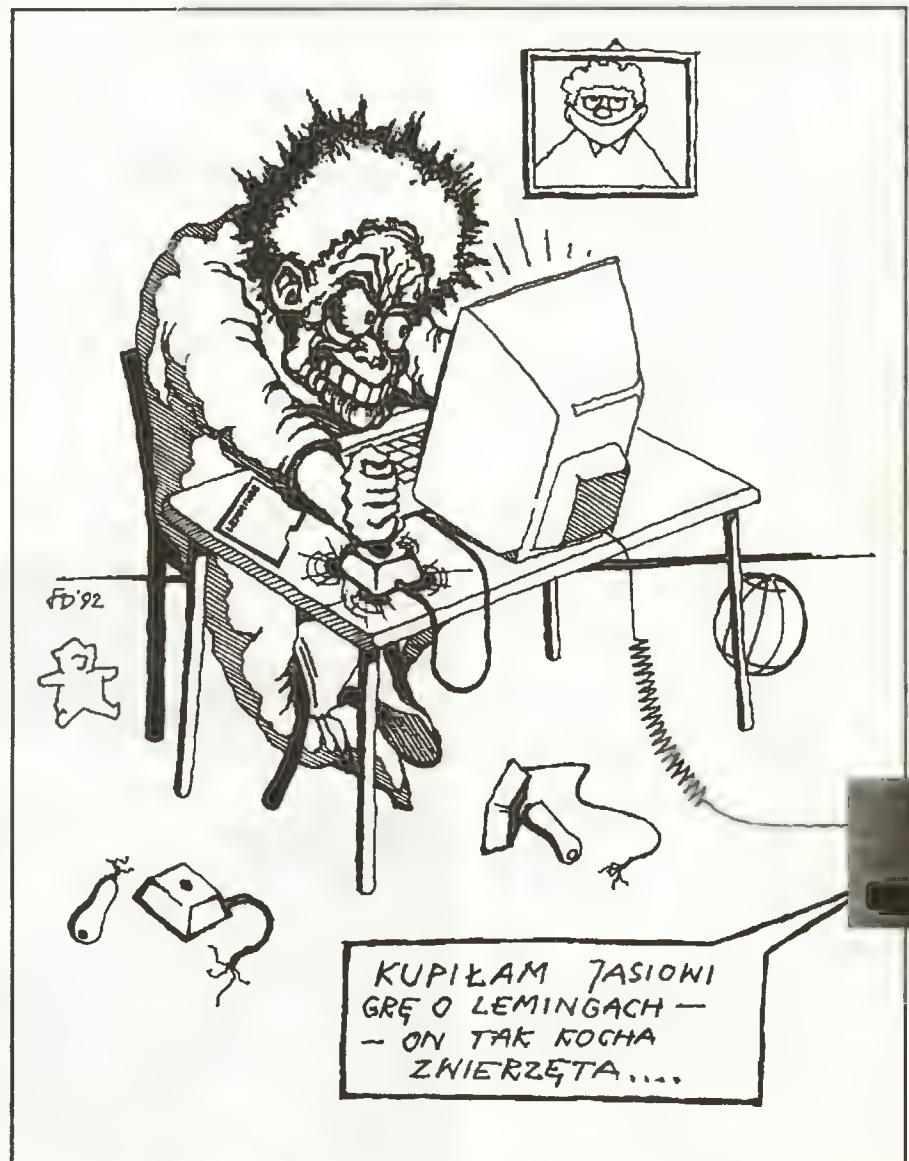 FD'92
KUPIŁAM JASIOWI
GRĘ O LEMINGACH —
— ON TAK KOCHA
ZWIERZĘTA....